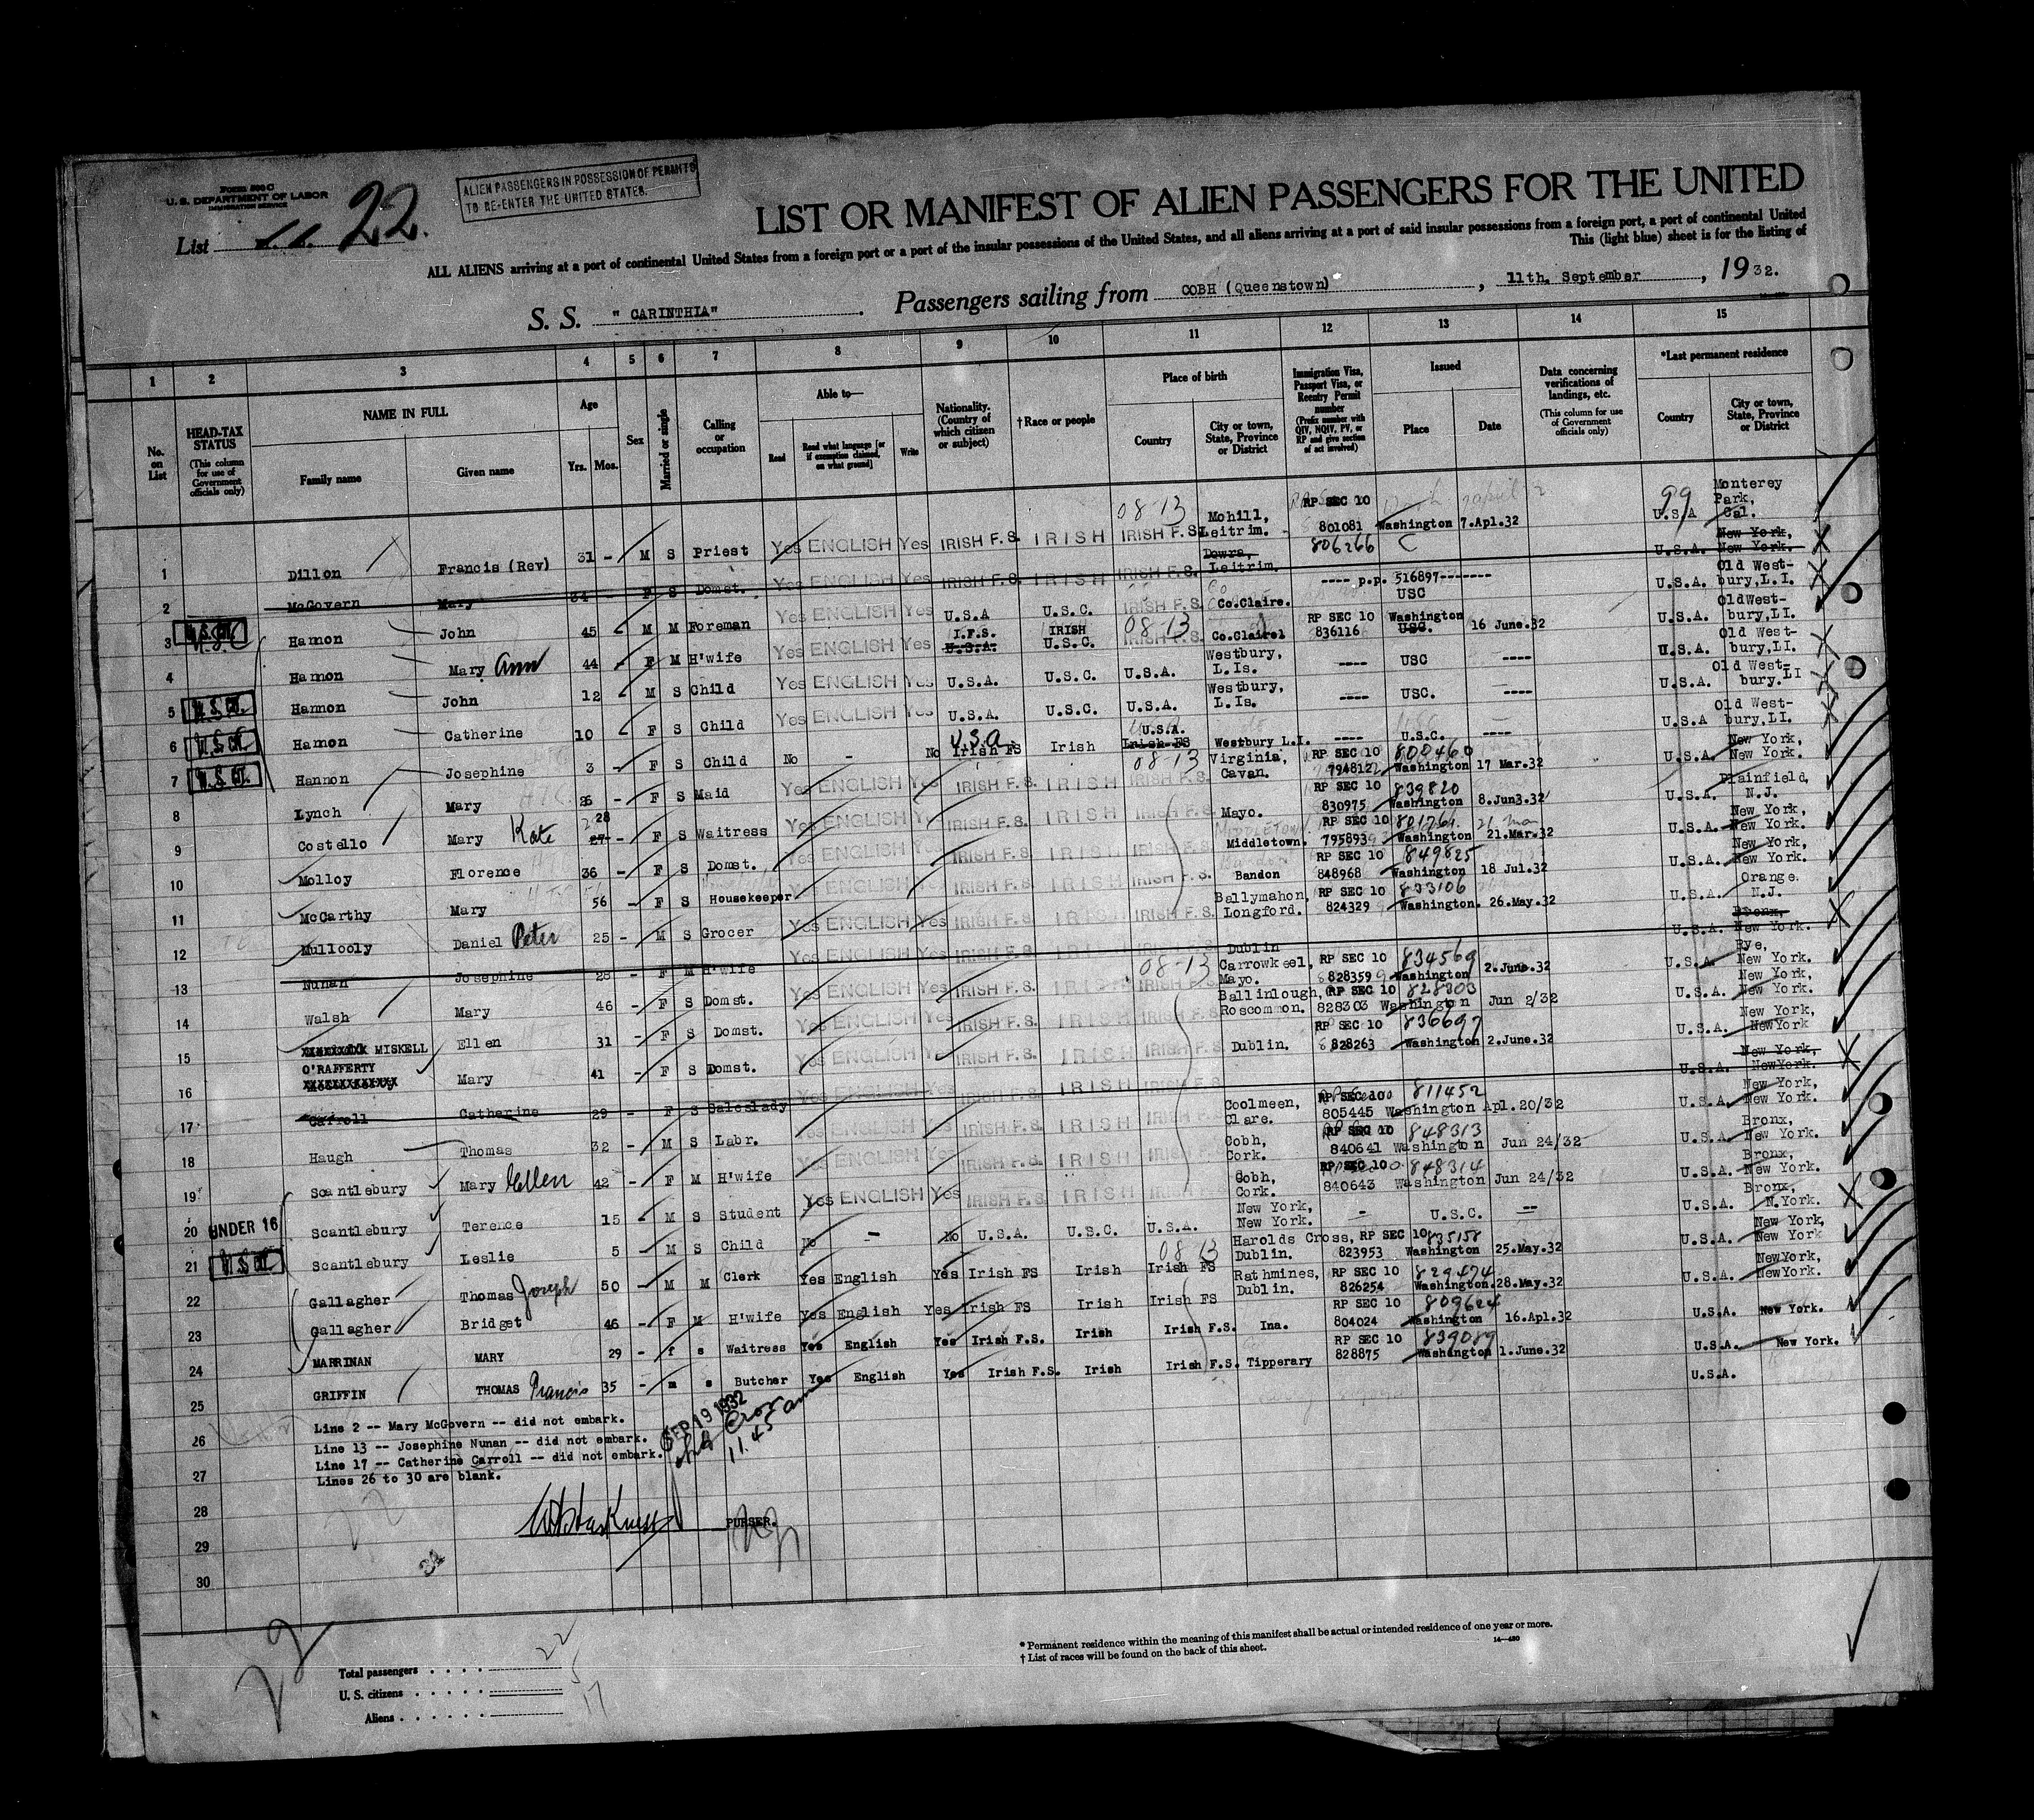 Form 500 C
U. S. DEPARTMENT OF LABOR
IMMIGRATION SERVICE
List 22.
ALIEN PASSENGERS IN POSSESSION OF PERMITS
TO RE-ENTER THE UNITED STATES.
LIST OR MANIFEST OF ALIEN PASSENGERS FOR THE UNITED
ALL ALIENS arriving at a port of continental United States from a foreign port or a port of the insular possessions of the United States, and all aliens arriving at a port of said insular possessions from a foreign port, a port of continental United
This (light blue) sheet is for the listing of
S. S. "CARINTHIA". Passengers sailing from COBH (Queenstown), 11th. September, 1932.
1 2 3 4 5 6 7 8 9 10 11 12 13 14 15
No. on List
HEAD-TAX STATUS (This column for use of Government officials only)
NAME IN FULL Family name Given name
Age Yrs. Mos.
Sex
Married or single
Calling or occupation
Able to— Read Read what language [or if exemption claimed, on what ground] Write
Nationality. (Country of which citizen or subject)
† Race or people
Place of birth Country City or town, State, Province or District
Immigration Visa, Passport Visa, or Reentry Permit number (Prefix number with QIV, NQIV, PV, or RP and give section of act involved)
Issued Place Date
Data concerning verifications of landings, etc. (This column for use of Government officials only)
*Last permanent residence Country City or town, State, Province or District
1 Dillon Francis (Rev) 31 - M S Priest Yes ENGLISH Yes IRISH F.S. IRISH 08-13 IRISH F.S. Mohill, Leitrim. RP SEC 10 801081 806266 Washington 7.Apl.32 99 U.S.A Monterey Park, Cal.
2 McGovern Mary 34 - F S Domst. Yes ENGLISH Yes IRISH F.S. IRISH IRISH F.S. Dowra, Leitrim. U.S.A. New York, New York.
3 Hannon John 45 - M M Foreman Yes ENGLISH Yes U.S.A U.S.C. IRISH F.S. Co.Claire. ---- p.p. 516897------- USC U.S.A. Old West-bury,L.I.
4 Hannon Mary Ann 44 - F M H'wife Yes ENGLISH Yes I.F.S. U.S.A. IRISH U.S.C. 08-13 IRISH F.S. Co.Claire. RP SEC 10 836116 Washington USC. 16 June.32 U.S.A. OldWest-bury,LI.
5 Hannon John 12 - M S Child Yes ENGLISH Yes U.S.A. U.S.C. U.S.A. Westbury, L.Is. ---- USC ---- U.S.A. Old West-bury,LI.
6 Hannon Catherine 10 - F S Child Yes ENGLISH Yes U.S.A. U.S.C. U.S.A. Westbury, L.Is. ---- USC. ---- U.S.A. Old West-bury.LI
7 Hannon Josephine 3 - F S Child No - No U.S.A. Irish FS Irish U.S.A. Irish FS Westbury L.I. ---- U.S.C. ---- U.S.A Old West-bury,LI.
8 Lynch Mary 26 - F S Maid Yes ENGLISH Yes IRISH F.S. IRISH 08-13 IRISH F.S. Virginia, Cavan. RP SEC 10 800460 794812 Washington 17 Mar.32 U.S.A. New York, New York.
9 Costello Mary Kate 28 27 - F S Waitress Yes ENGLISH Yes IRISH F.S. IRISH IRISH F.S. Mayo. RP SEC 10 839820 830975 Washington 8.Jun3.32 U.S.A. Plainfield, N.J.
10 Molloy Florence 36 - F S Domst. Yes ENGLISH Yes IRISH F.S. IRISH IRISH F.S. Middletown. RP SEC 10 801761 795893 Washington 21.Mar.32 U.S.A. New York, New York.
11 McCarthy Mary 56 - F S Housekeeper Yes ENGLISH Yes IRISH F.S. IRISH IRISH F.S. Bandon RP SEC 10 849825 848968 Washington 18 Jul.32 U.S.A. New York, New York.
12 Mullooly Daniel Peter 25 - M S Grocer Yes ENGLISH Yes IRISH F.S. IRISH IRISH F.S. Ballymahon, Longford. RP SEC 10 833106 824329 Washington. 26.May.32 U.S.A. Orange. N.J.
13 Nunan Josephine 28 - F M H'wife Yes ENGLISH Yes IRISH F.S. IRISH IRISH F.S. Dublin U.S.A. Bronx, New York.
14 Walsh Mary 46 - F S Domst. Yes ENGLISH Yes IRISH F.S. IRISH 08-13 IRISH F.S. Carrowkeel, Mayo. RP SEC 10 834569 828359 Washington 2.June.32 U.S.A. Rye, New York.
15 MISKELL Ellen 31 - F S Domst. Yes ENGLISH Yes IRISH F.S. IRISH IRISH F.S. Ballinlough, Roscommon. RP SEC 10 828303 828303 Washington Jun 2/32 U.S.A. New York, New York.
16 O'RAFFERTY Mary 41 - F S Domst. Yes ENGLISH Yes IRISH F.S. IRISH IRISH F.S. Dublin. RP SEC 10 836697 828263 Washington 2.June.32 U.S.A. New York, NewYork
17 Carroll Catherine 29 - F S Saleslady Yes ENGLISH Yes IRISH IRISH F.S. U.S.A. New York, NewYork.
18 Haugh Thomas 32 - M S Labr. Yes ENGLISH Yes IRISH F.S. IRISH IRISH Coolmeen, Clare. RP SEC 10 811452 805445 Washington Apl.20/32 U.S.A. New York, New York.
19 Scantlebury Mary Ellen 42 - F M H'wife Yes ENGLISH Yes IRISH F.S. IRISH IRISH Cobh, Cork. RP SEC 10 848313 840641 Washington Jun 24/32 U.S.A. Bronx, New York.
20 UNDER 16 Scantlebury Terence 15 - M S Student Yes ENGLISH Yes IRISH F.S. IRISH IRISH Cobh, Cork. RP SEC 10 848314 840643 Washington Jun 24/32 U.S.A. Bronx, New York.
21 Scantlebury Leslie 5 - M S Child No - No U.S.A. U.S.C. U.S.A. New York, New York. - U.S.C. -- U.S.A. Bronx, N.York.
22 Gallagher Thomas Joseph 50 - M M Clerk Yes English Yes Irish FS Irish 08 13 Irish FS Harolds Cross, Dublin. RP SEC 10 835158 823953 Washington 25.May.32 U.S.A. New York, New York
23 Gallagher Bridget 46 - F M H'wife Yes English Yes Irish FS Irish Irish FS Rathmines, Dublin. RP SEC 10 829474 826254 Washington.28.May.32 U.S.A. NewYork, NewYork.
24 MARRINAN MARY 29 - f s Waitress Yes English Yes Irish F.S. Irish Irish F.S. Ina. RP SEC 10 809624 804024 Washington 16.Apl.32 U.S.A. New York.
25 GRIFFIN THOMAS Francis 35 - m s Butcher Yes English Yes Irish F.S. Irish Irish F.S. Tipperary RP SEC 10 839089 828875 Washington 1.June.32 U.S.A. New York.
U.S.A.
26 Line 2 -- Mary McGovern -- did not embark.
Line 13 -- Josephine Nunan -- did not embark.
27 Line 17 -- Catherine Carroll -- did not embark.
Lines 26 to 30 are blank.
SEP 19 1932
11.45 am
28
PURSER.
29
30
22
Total passengers . . . . 22
U. S. citizens . . . . . 5
Aliens . . . . . . 17
* Permanent residence within the meaning of this manifest shall be actual or intended residence of one year or more.
† List of races will be found on the back of this sheet.
14—480